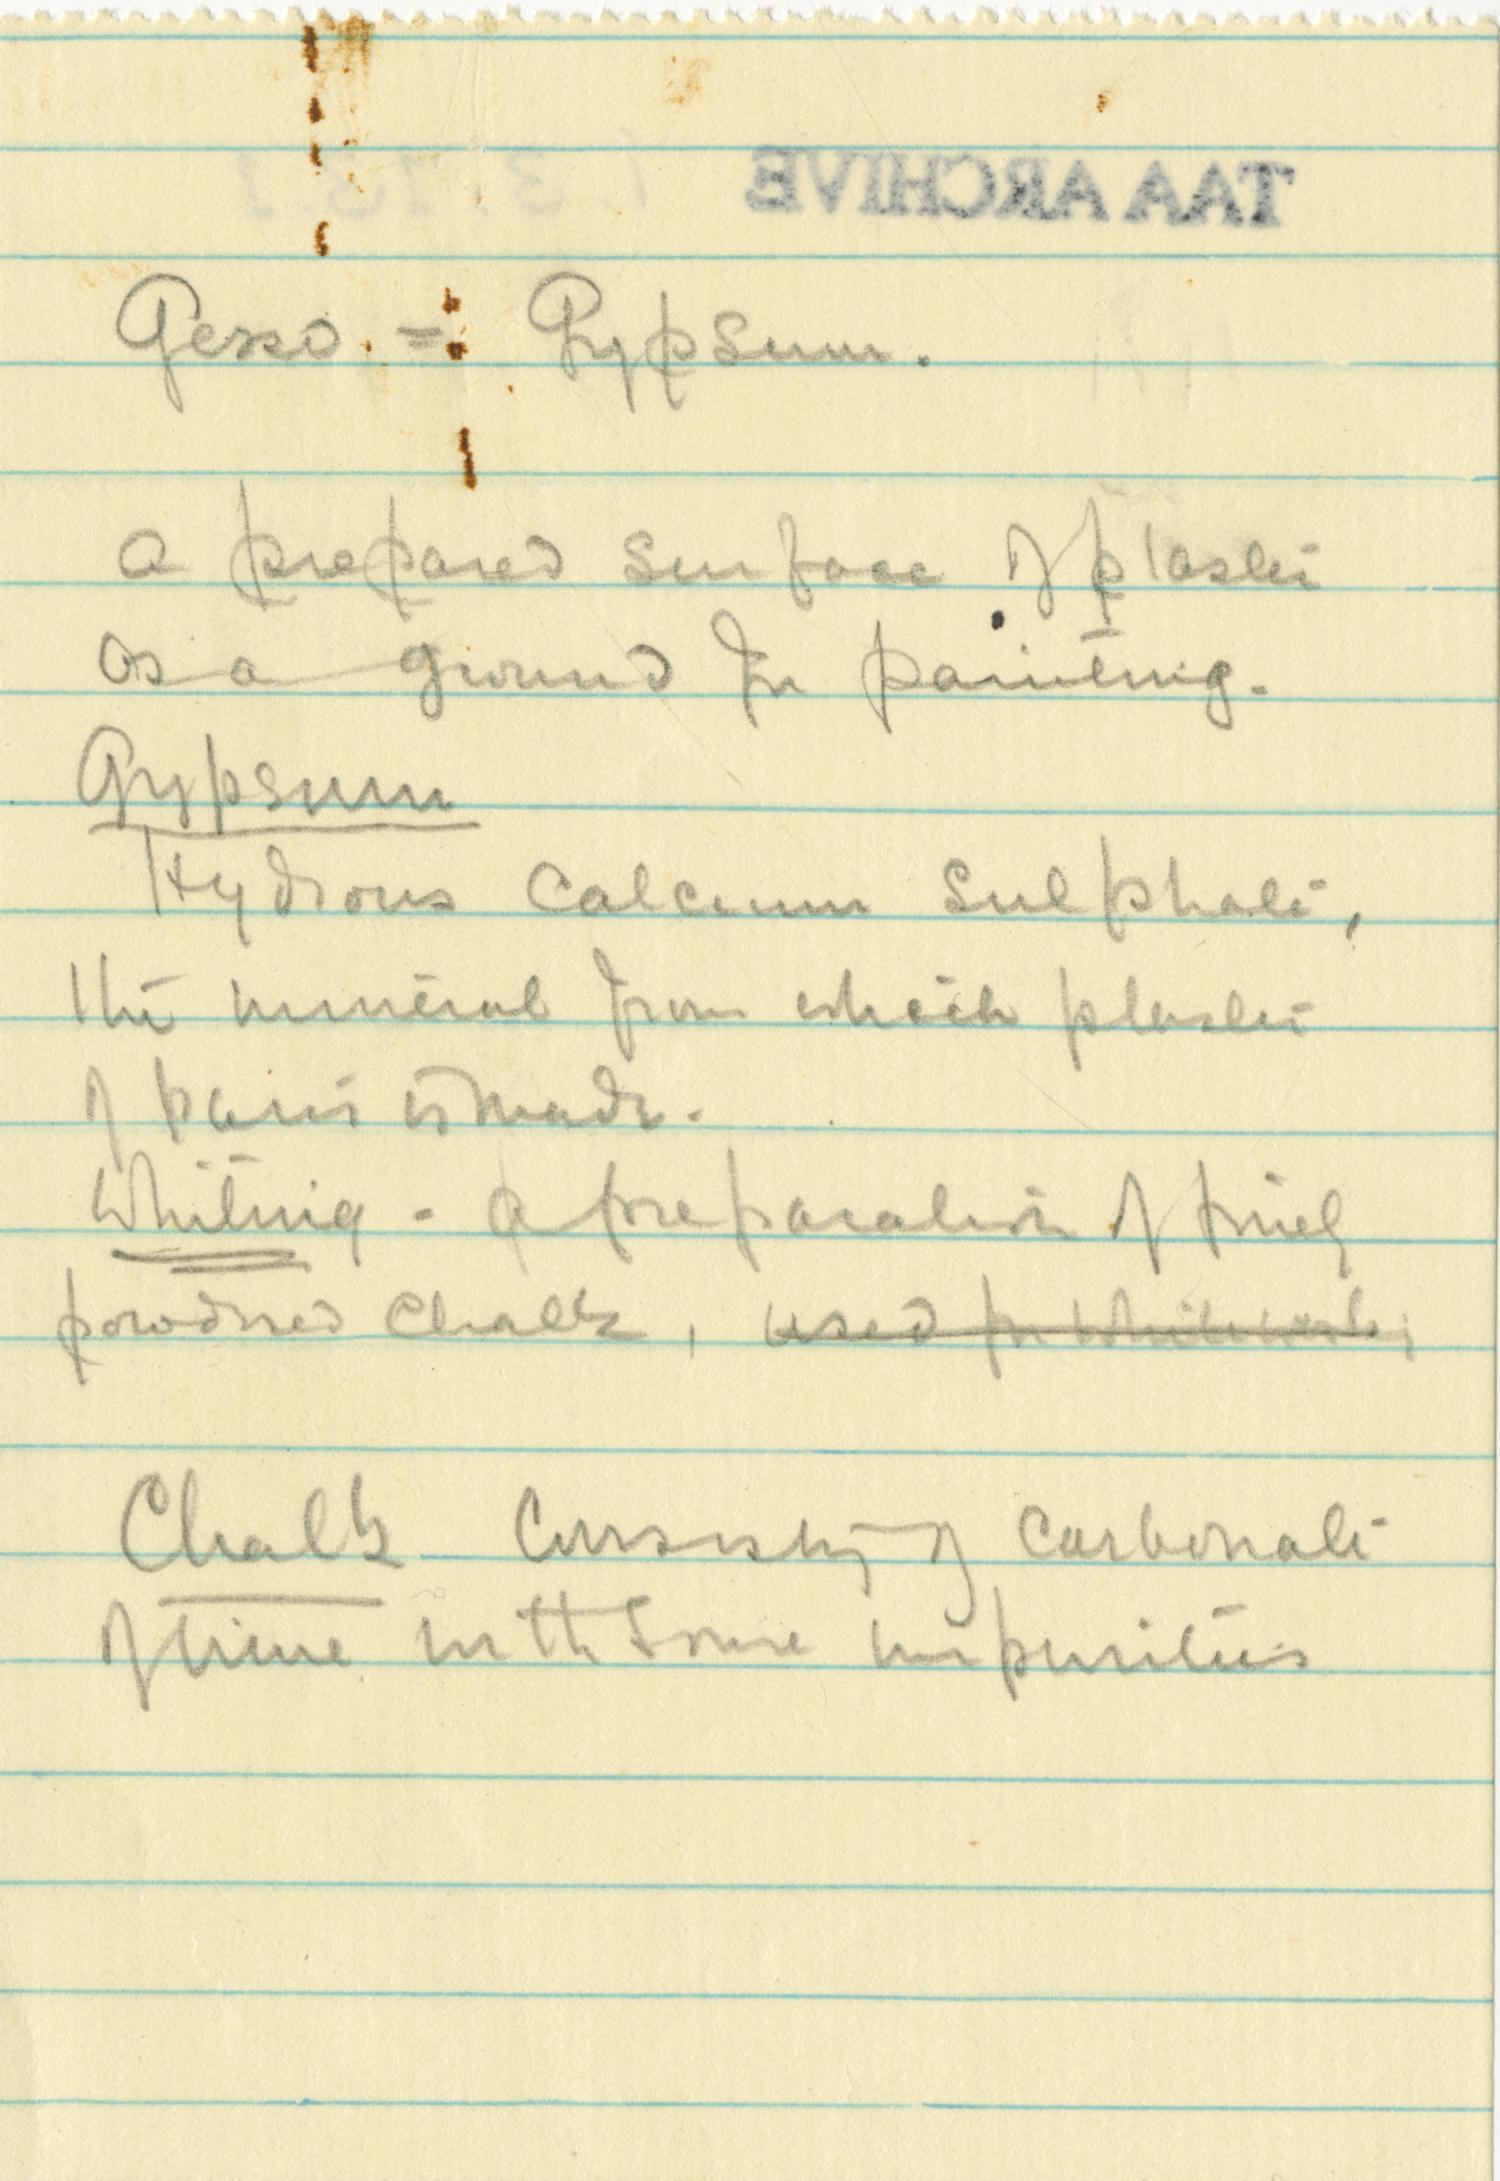 TAA ARCHIVE
1.3.15.1
Gesso = Gypsum.
a prepared surface of plaster
as a ground for painting.
Gypsum
Hydrous Calcium Sulphate,
the mineral from which plaster
of paris is made.
Whiting - a preparation of finely
powdered chalk, used for whitewash,
Chalk Consisting of carbonate
of lime with some impurities